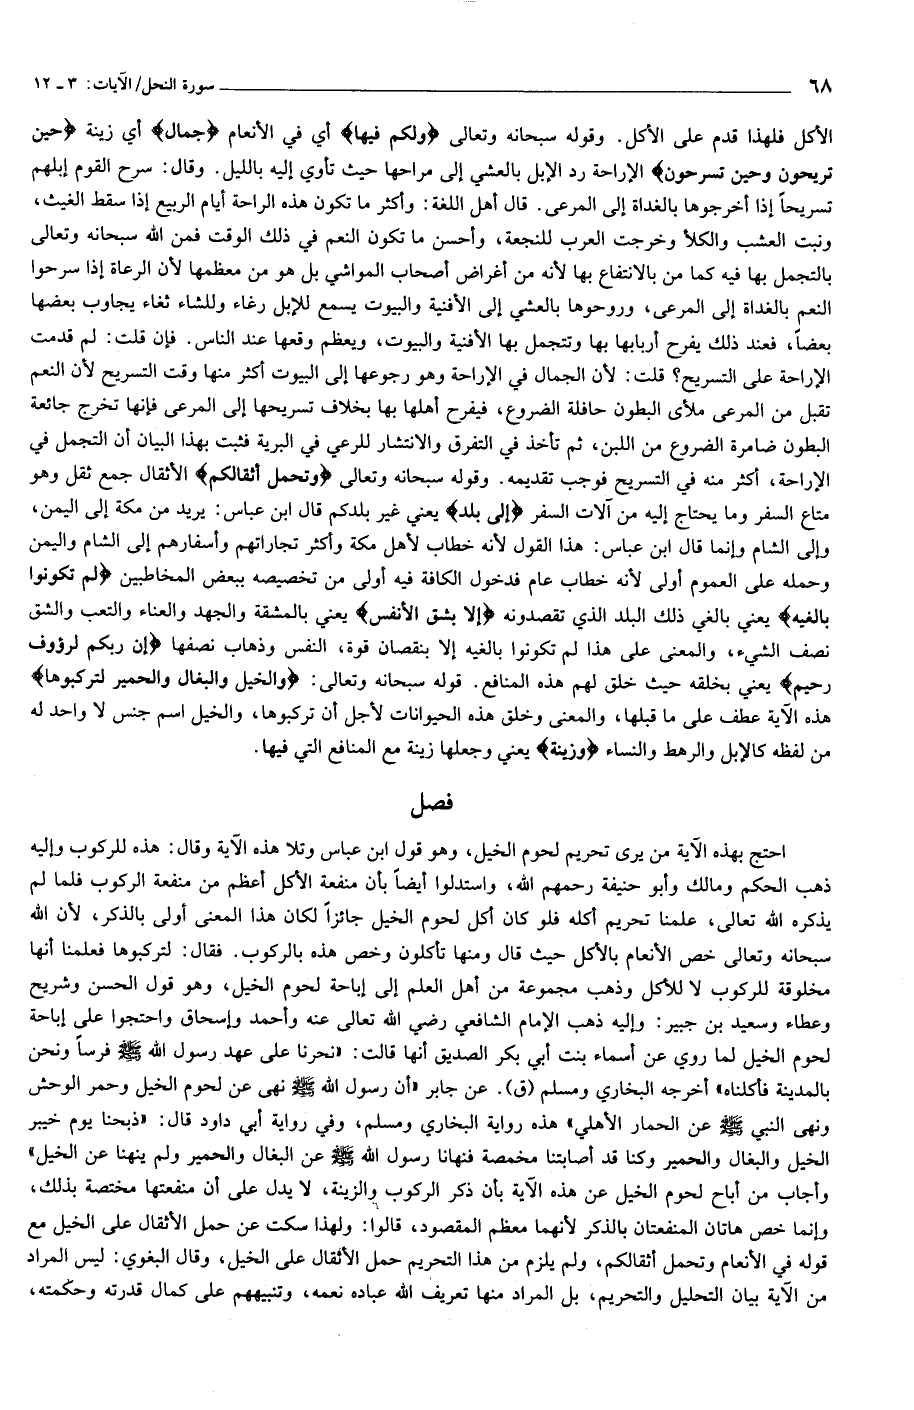 ٦٨ سورة النحل/ الآيات: ٣ ـ ١٢
الأكل فلهذا قدم على الأكل. وقوله سبحانه وتعالى ﴿ولكم فيها﴾ أي في الأنعام ﴿جمال﴾ أي زينة ﴿حين
تريحون وحين تسرحون﴾ الإراحة رد الإبل بالعشي إلى مراحها حيث تأوي إليه بالليل. وقال: سرح القوم إبلهم
تسريحاً إذا أخرجوها بالغداة إلى المرعى. قال أهل اللغة: وأكثر ما تكون هذه الراحة أيام الربيع إذا سقط الغيث،
ونبت العشب والكلأ وخرجت العرب للنجعة، وأحسن ما تكون النعم في ذلك الوقت فمن الله سبحانه وتعالى
بالتجمل بها فيه كما من بالانتفاع بها لأنه من أغراض أصحاب المواشي بل هو من معظمها لأن الرعاة إذا سرحوا
النعم بالغداة إلى المرعى، وروحوها بالعشي إلى الأفنية والبيوت يسمع للإبل رغاء وللشاء ثغاء يجاوب بعضها
بعضاً، فعند ذلك يفرح أربابها بها وتتجمل بها الأفنية والبيوت، ويعظم وقعها عند الناس. فإن قلت: لم قدمت
الإراحة على التسريح؟ قلت: لأن الجمال في الإراحة وهو رجوعها إلى البيوت أكثر منها وقت التسريح لأن النعم
تقبل من المرعى ملأى البطون حافلة الضروع، فيفرح أهلها بها بخلاف تسريحها إلى المرعى فإنها تخرج جائعة
البطون ضامرة الضروع من اللبن، ثم تأخذ في التفرق والانتشار للرعي في البرية فثبت بهذا البيان أن التجمل في
الإراحة، أكثر منه في التسريح فوجب تقديمه. وقوله سبحانه وتعالى ﴿وتحمل أثقالكم﴾ الأثقال جمع ثقل وهو
متاع السفر وما يحتاج إليه من آلات السفر ﴿إلى بلد﴾ يعني غير بلدكم قال ابن عباس: يريد من مكة إلى اليمن،
وإلى الشام وإنما قال ابن عباس: هذا القول لأنه خطاب لأهل مكة وأكثر تجاراتهم وأسفارهم إلى الشام واليمن
وحمله على العموم أولى لأنه خطاب عام فدخول الكافة فيه أولى من تخصيصه ببعض المخاطبين ﴿لم تكونوا
بالغيه﴾ يعني بالغي ذلك البلد الذي تقصدونه ﴿إلا بشق الأنفس﴾ يعني بالمشقة والجهد والعناء والتعب والشق
نصف الشيء، والمعنى على هذا لم تكونوا بالغيه إلا بنقصان قوة، النفس وذهاب نصفها ﴿إن ربكم لرؤوف
رحيم﴾ يعني بخلقه حيث خلق لهم هذه المنافع. قوله سبحانه وتعالى: ﴿والخيل والبغال والحمير لتركبوها﴾
هذه الآية عطف على ما قبلها، والمعنى وخلق هذه الحيوانات لأجل أن تركبوها، والخيل اسم جنس لا واحد له
من لفظه كالإبل والرهط والنساء ﴿وزينة﴾ يعني وجعلها زينة مع المنافع التي فيها.
فصل
احتج بهذه الآية من يرى تحريم لحوم الخيل، وهو قول ابن عباس وتلا هذه الآية وقال: هذه للركوب وإليه
ذهب الحكم ومالك وأبو حنيفة رحمهم الله، واستدلوا أيضاً بأن منفعة الأكل أعظم من منفعة الركوب فلما لم
يذكره الله تعالى، علمنا تحريم أكله فلو كان أكل لحوم الخيل جائزاً لكان هذا المعنى أولى بالذكر، لأن الله
سبحانه وتعالى خص الأنعام بالأكل حيث قال ومنها تأكلون وخص هذه بالركوب. فقال: لتركبوها فعلمنا أنها
مخلوقة للركوب لا للأكل وذهب مجموعة من أهل العلم إلى إباحة لحوم الخيل، وهو قول الحسن وشريح
وعطاء وسعيد بن جبير: وإليه ذهب الإمام الشافعي رضي الله تعالى عنه وأحمد وإسحاق واحتجوا على إباحة
لحوم الخيل لما روي عن أسماء بنت أبي بكر الصديق أنها قالت: «نحرنا على عهد رسول الله ﷺ فرساً ونحن
بالمدينة فأكلناه» أخرجه البخاري ومسلم (ق). عن جابر «أن رسول الله ﷺ نهى عن لحوم الخيل وحمر الوحش
ونهى النبي ﷺ عن الحمار الأهلي» هذه رواية البخاري ومسلم، وفي رواية أبي داود قال: «ذبحنا يوم خيبر
الخيل والبغال والحمير وكنا قد أصابتنا مخمصة فنهانا رسول الله ﷺ عن البغال والحمير ولم ينهنا عن الخيل»
وأجاب من أباح لحوم الخيل عن هذه الآية بأن ذكر الركوب والزينة، لا يدل على أن منفعتها مختصة بذلك،
وإنما خص هاتان المنفعتان بالذكر لأنهما معظم المقصود، قالوا: ولهذا سكت عن حمل الأثقال على الخيل مع
قوله في الأنعام وتحمل أثقالكم، ولم يلزم من هذا التحريم حمل الأثقال على الخيل، وقال البغوي: ليس المراد
من الآية بيان التحليل والتحريم، بل المراد منها تعريف الله عباده نعمه، وتنبيههم على كمال قدرته وحكمته،